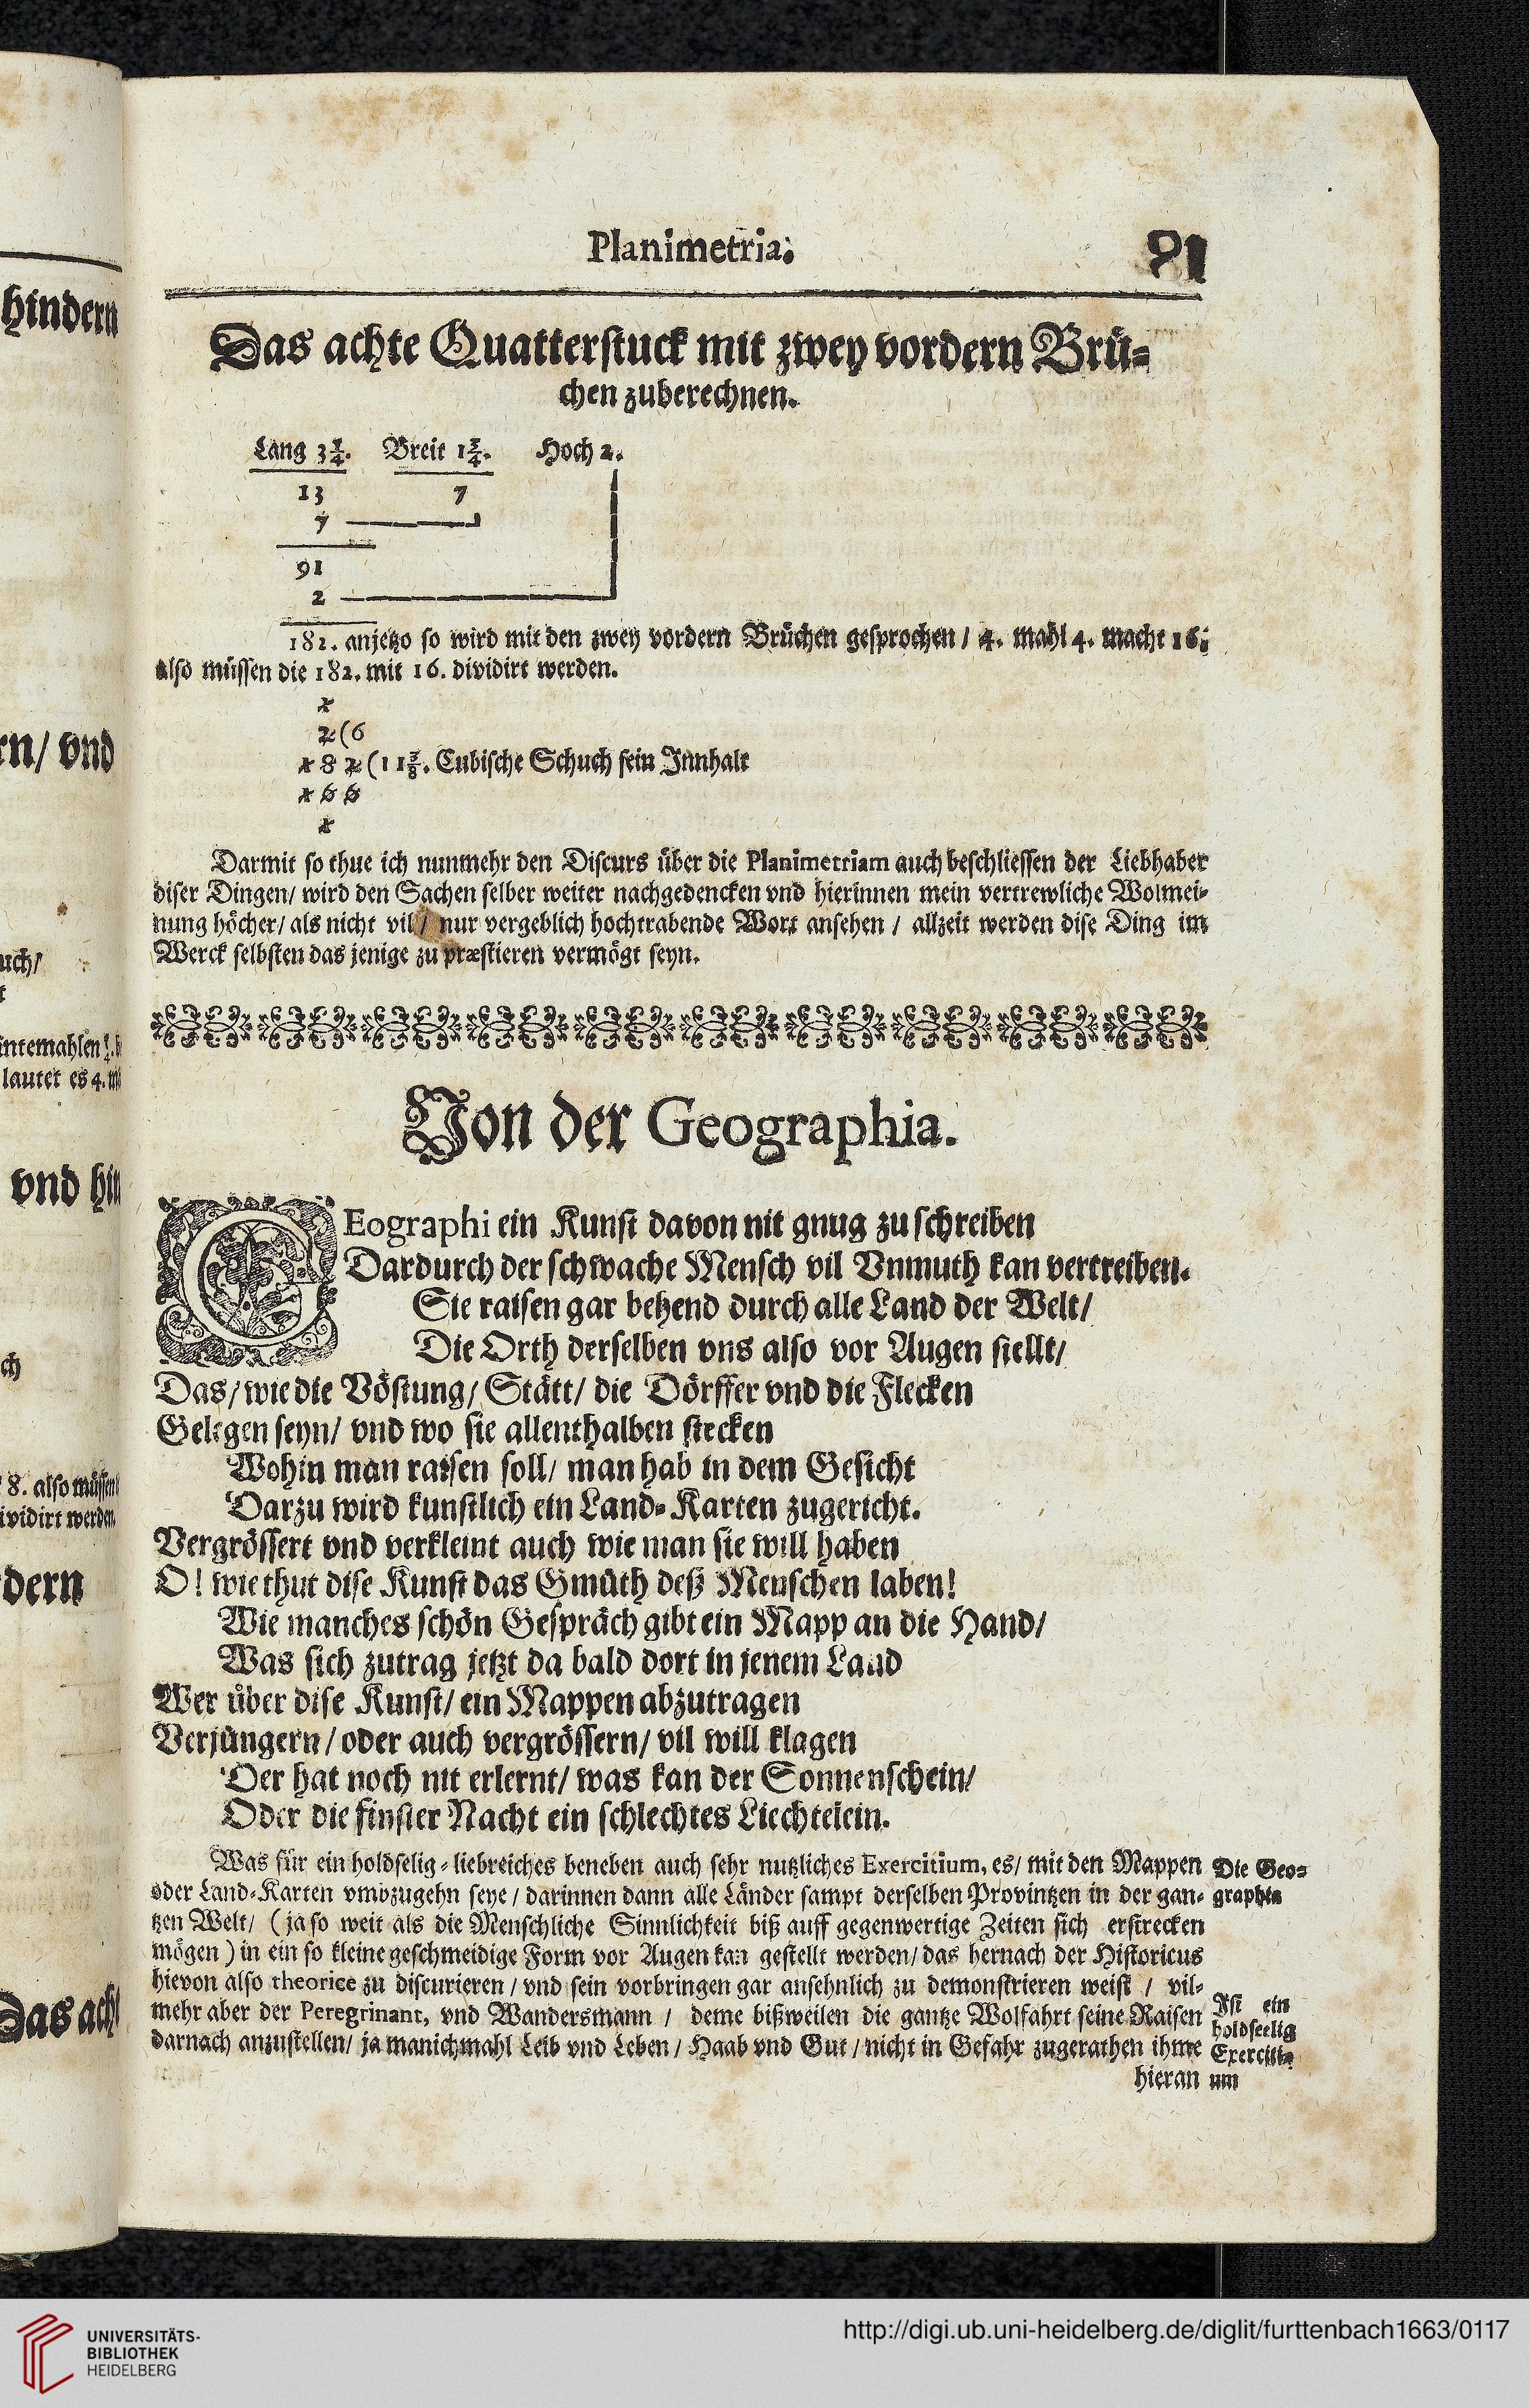 Planimetria.
91
Das achte Quatterstuck mit zwey vordern Brü-
chen zuberechnen.
Lang 3 1/4. Breit 1 3/4. Hoch 2.
13 7
7
91
2
182. anjetzo so wird mit den zwey vordern Brüchen gesprochen / 4. mahl 4. macht 16:
also müssen die 182. mit 16. dividirt werden.
1
2(6
182(11 3/8. Cubische Schuch sein Innhalt
166
1
Darmit so thue ich nunmehr den Discurs über die Planimetriam auch beschliessen der Liebhaber
diser Dingen/ wird den Sachen selber weiter nachgedencken vnd hierinnen mein vertrewliche Wolmei-
nung höcher/ als nicht vil / nur vergeblich hochtrabende Wort ansehen / allzeit werden dise Ding im
Werck selbsten das jenige zu præstieren vermögt seyn.
Von der Geographia.
GEographi ein Kunst davon nit gnug zu schreiben
Dardurch der schwache Mensch vil Vnmuth kan vertreiben.
Sie raisen gar behend durch alle Land der Welt/
Die Orth derselben vns also vor Augen stellt/
Das/ wie die Vöstung/ Stätt/ die Dörffer vnd die Flecken
Gelegen seyn/ vnd wo sie allenthalben stecken
Wohin man raisen soll/ man hab in dem Gesicht
Darzu wird kunstlich ein Land-Karten zugericht.
Vergrössert vnd verkleint auch wie man sie will haben
O! wie thut dise Kunst das Gmüth deß Menschen laben!
Wie manches schön Gespräch gibt ein Mapp an die Hand/
Was sich zutrag jetzt da bald dort in jenem Land
Wer über dise Kunst/ ein Mappen abzutragen
Verjüngern / oder auch vergrössern/ vil will klagen
Der hat noch nit erlernt/ was kan der Sonnenschein/
Oder die finster Nacht ein schlechtes Liechtelein.
Was für ein holdselig-liebreiches beneben auch sehr nutzliches Exercitium, es/ mit den Mappen
oder Land-Karten vmbzugehn seye / darinnen dann alle Länder sampt derselben Provintzen in der gan-
tzen Welt/ (ja so weit als die Menschliche Sinnlichkeit biß auff gegenwertige Zeiten sich erstrecken
mögen) in ein so kleine geschmeidige Form vor Augen kan gestellt werden/ das hernach der Historicus
hievon also theorice zu discurieren / vnd sein vorbringen gar ansehnlich zu demonstrieren weist / vil-
mehr aber der Peregrinant, vnd Wandersmann / deme bißweilen die gantze Wolfahrt seine Raisen
darnach anzustellen/ ja manichmahl Leib vnd Leben / Haab vnd Gut / nicht in Gefahr zugerathen ihme
hieran
Die Geo-
graphia
Ist ein
holdseelig
Exerciti-
um
hindern
rn/ vnd
uch/
intemahlen
lautet es 4.
vnd hin
ch
8. also müssen
ividirt werden
dern
Das acht
UNIVERSITÄTS-
BIBLIOTHEK
HEIDELBERG
http://digi.ub.uni-heidelberg.de/diglit/furttenbach1663/0117